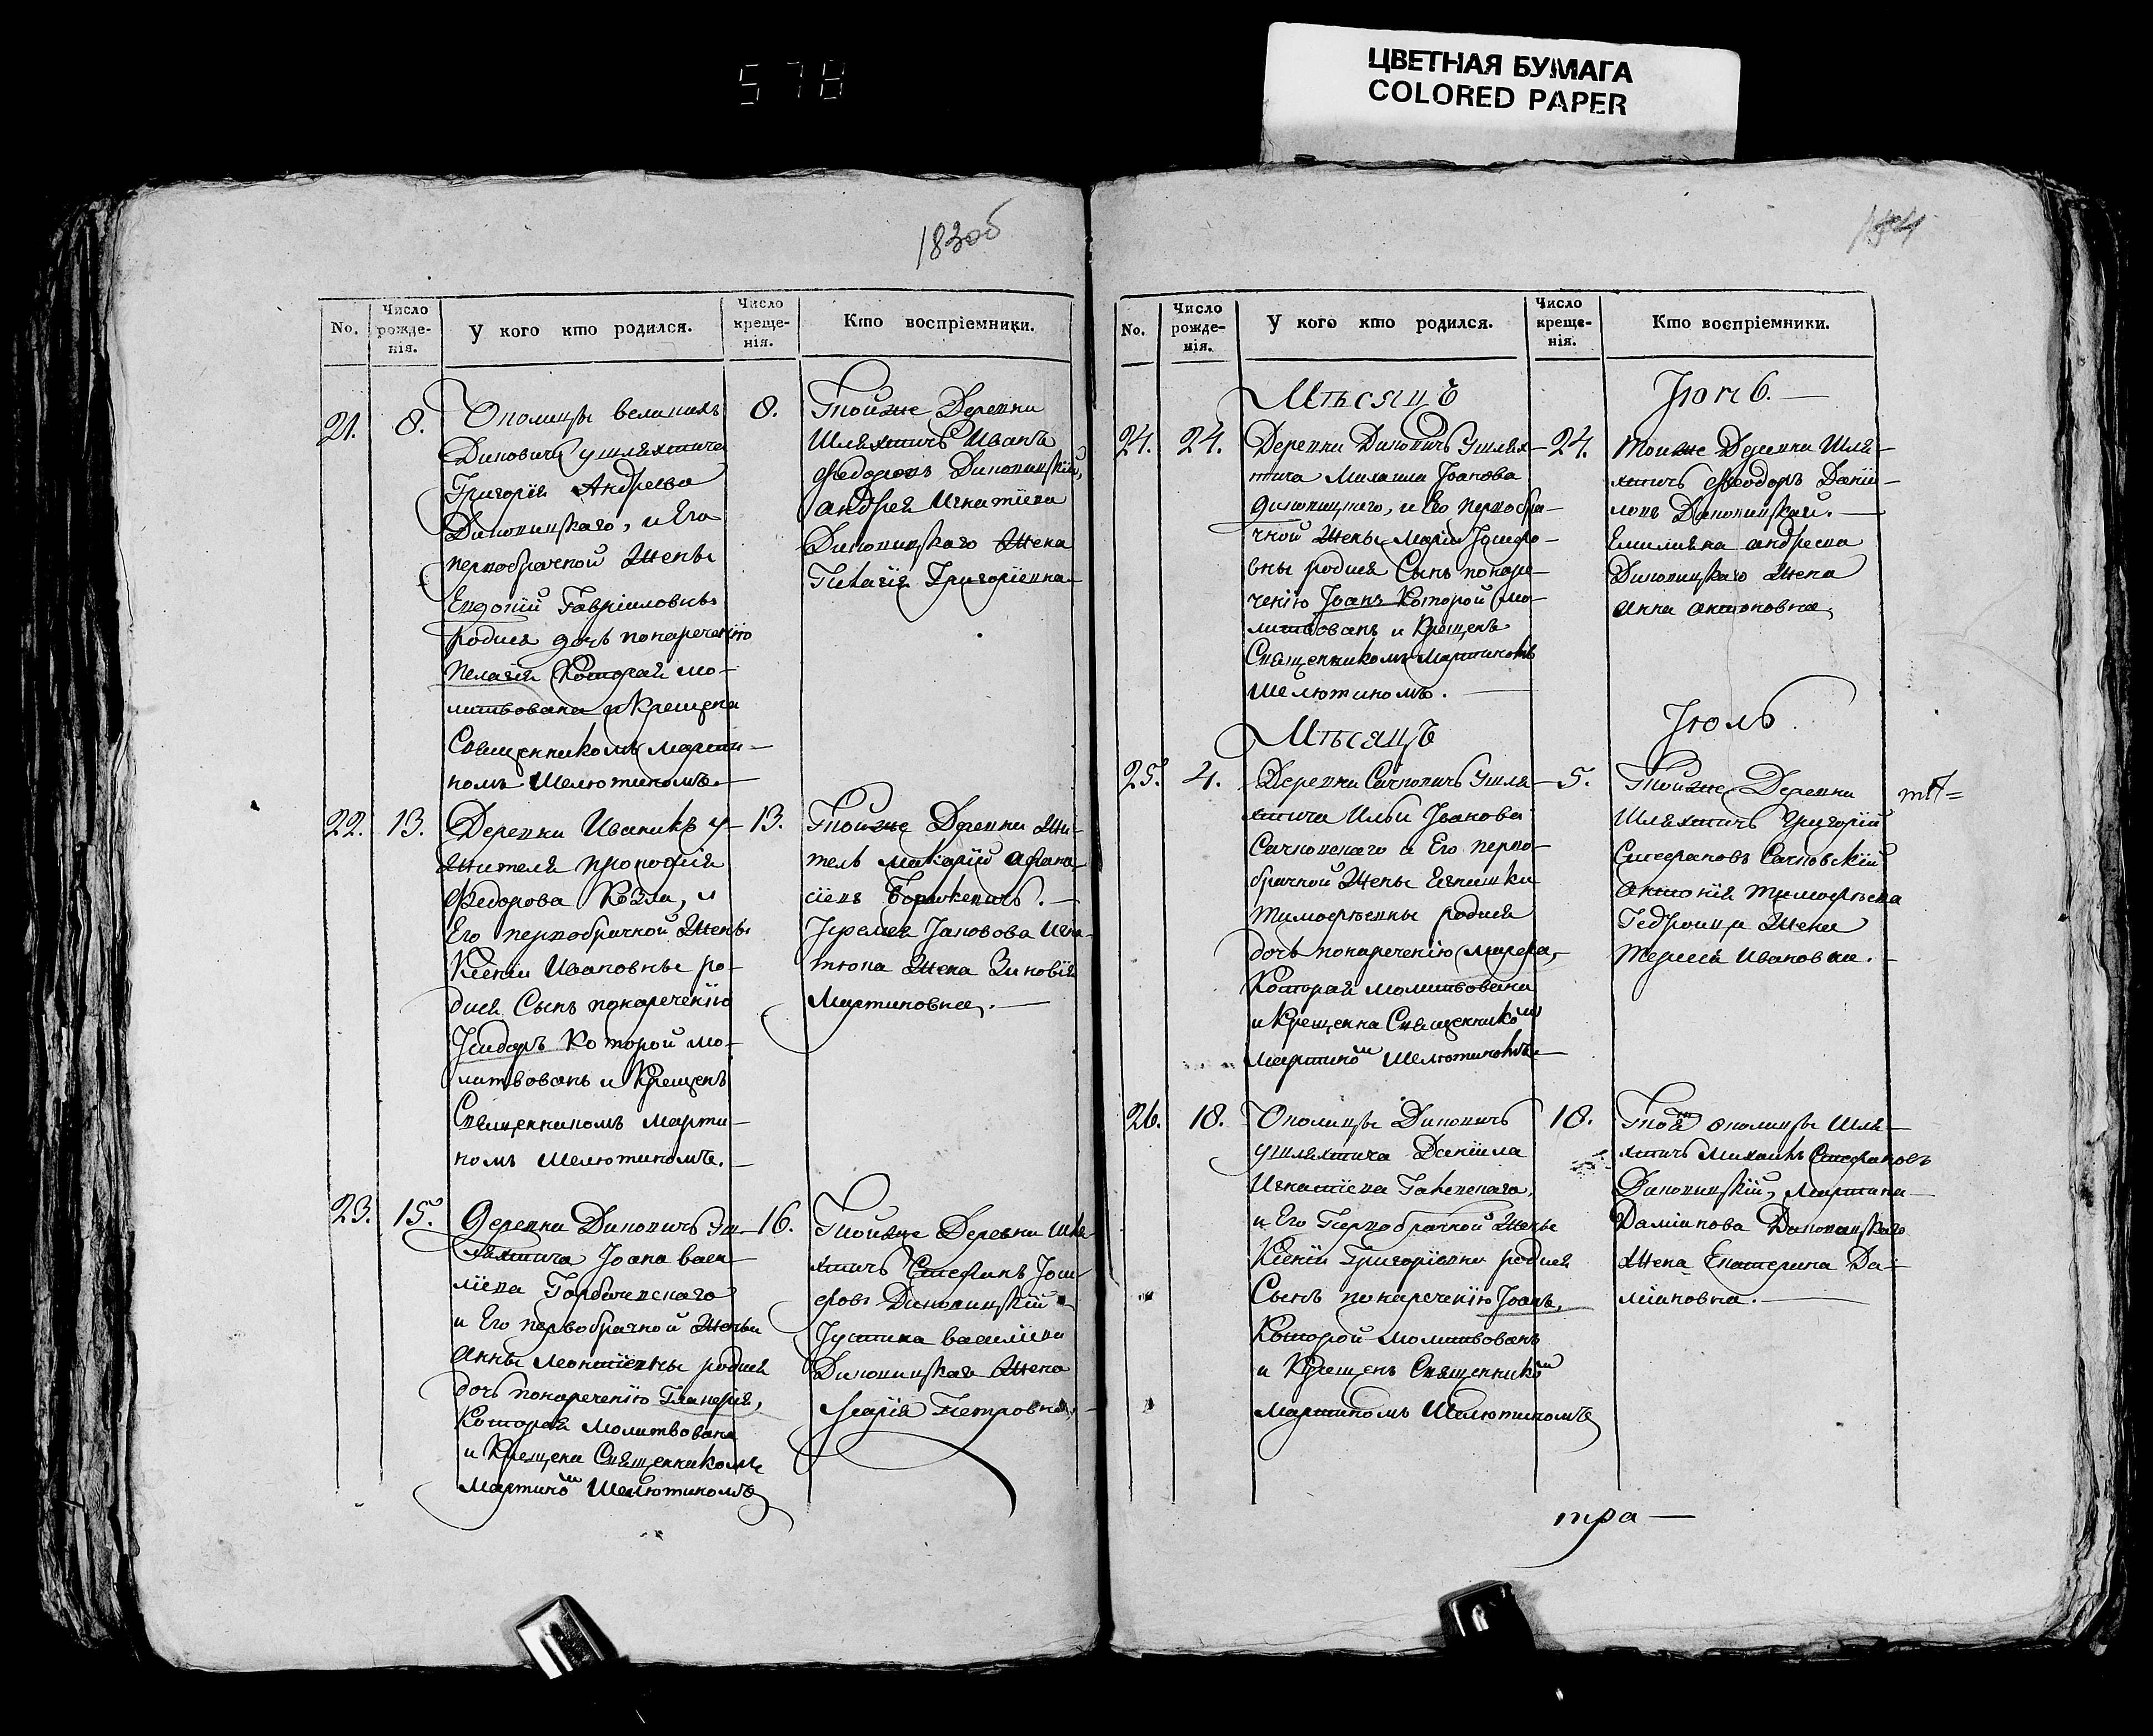 578
ЦВЕТНАЯ БУМАГА
COLORED PAPER
183об
184
No.
Число рожде-нія.
У кого кто родился.
Число креще-нія.
Кто воспріемники.
21.
8.
Околицы великихъ
Диковичъ у шляхтича
Григорія Андреева
Диковицкаго, и Его
первобрачной Жены
Евдокіи Гавріиловны
родися дочь понареченію
Пелагія Которая мо-
литвована и Крещена
Священникомъ Марти-
номъ Шелютиномъ.
8.
Тойже Деревни
Шляхтичъ Иванъ
Федоровъ Диковицкій,
андрея Игнатіева
Диковицкаго Жена
Пелагія Григоріевна
22.
13.
Деревни Иваникъ у
Жителя прокофія
Федорова Козла, и
Его первобрачной Жены
Ксеніи Ивановны ро-
дися Сынъ понареченію
Ісидоръ Которой мо-
литвованъ и Крещенъ
Священникомъ Марти-
номъ Шелютиномъ.
13.
Тойже Деревни Жи-
тель Макарій Афана-
сіевъ
Іеремея Іаковова Игна-
тюка Жена Зиновія
Мартиновна.
23.
15.
Деревни Диковичъ у ш-
ляхтича Іоана васи-
ліева Горбачевскаго
и Его первобрачной Жены
Анны Леонтіевны родися
дочь понареченію Гликерія,
Которая Молитвована
и Крещена Священникомъ
Мартиномъ Шелютиномъ
16.
Тойже Деревни Шля-
хтичъ Стефанъ Іоси-
фовъ Диковицкій
Іустина василіева
Диковицкая Жена
Марія Петровна,
No.
Число рожде-нія.
У кого кто родился.
Число креще-нія.
Кто воспріемники.
Мѣсяцъ
Іюнь.
24.
24.
Деревни Диковичъ У шлях-
тича Михаила Іоанова
Диковицкаго, и Его первобра-
чной Жены Маріи Іосифо-
вны родися Сынъ понаре-
ченію Іоанъ Которой мо-
литвованъ и Крещенъ
Священникомъ Мартиномъ
Шелютиномъ.
24.
Тойже Деревни Шля-
хтичъ Феодоръ Дани-
ловъ Диковицкій.
Емиліяна андреева
Диковицкаго Жена
Анна антоновна,
Мѣсяцъ
Іюль.
25.
4.
Деревни Сачковичъ У шля-
хтича Ильи Іванова
Сачковскаго и Его перво-
брачной Жены Агапки
Тимофѣевны родися
дочь понареченію Марфа,
Которая молитвована
и Крещенна Священникомъ
Мартиномъ Шелютиномъ
5.
Тойже Деревни
Шляхтичъ Григорій
Стефановъ Сачковскій
антонія Тимофѣева
Гедроица Жена
Тереса Ивановна.
26.
18.
Околицы Диковичъ
у шляхтича Даніила
Игнатіева Галевскаго,
и Его Первобрачной Жены
Ксеніи Григоріевны родися
Сынъ понареченію Іоанъ,
Которой молитвованъ
и Крещенъ Священникомъ
Мартиномъ Шелютиномъ
18.
Тойже околицы Шля-
хтичъ Михаилъ Стефановъ
Диковицкій, Мартина
Даміанова Диковицкаго
Жена Екатерина Да-
міановна.
тра